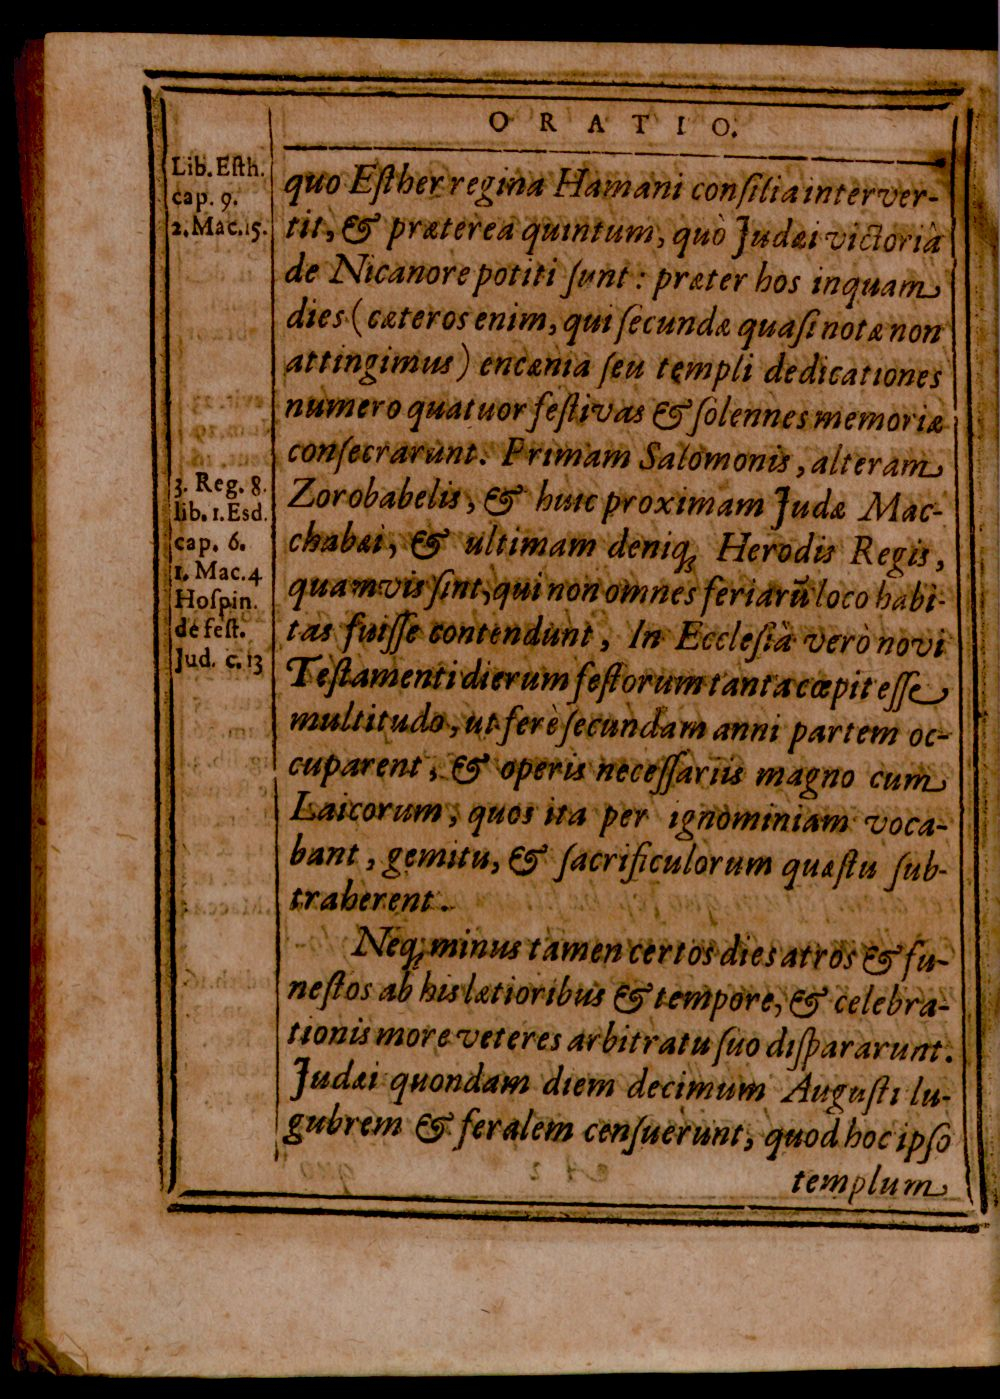 ORATIO.
Lib. Eſth.
cap. 9.
2. Mac. 15.
quo Eſther regina Hamani conſilia interver-
tit, & præterea quintum, quò Judæi victoriâ
de Nicanore potiti ſunt: præter hos inquam
dies (cæteros enim, qui ſecundæ quaſi notæ non
attingimus) encænia ſeu templi dedicationes
numero quatuor feſtivas & ſolennes memoriæ
conſecrarunt. Primam Salomonis, alteram
3. Reg. 8.
lib. 1. Esd.
cap. 6.
1. Mac. 4
Hoſpin.
de feſt.
Jud. c. 13
Zorobabelis, & huic proximam Judæ Mac-
chabæi, & ultimam deniq; Herodis Regis,
quamvis ſint, qui non omnes feriarũ loco habi-
tas fuiſſe contendunt, In Eccleſiâ verò novi
Teſtamenti dierum feſtorum tanta cœpit eſſe
multitudo, ut ferè ſecundam anni partem oc-
cuparent, & operis neceſſariis magno cum
Laicorum, quos ita per ignominiam voca-
bant, gemitu, & ſacrificulorum quæſtu ſub-
traherent.
Neq; minus tamen certos dies atros & fu-
neſtos ab his lætioribus & tempore, & celebra-
tionis more veteres arbitratu ſuo diſpararunt.
Judæi quondam diem decimum Auguſti lu-
gubrem & feralem cenſuerunt, quod hoc ipſo
templum